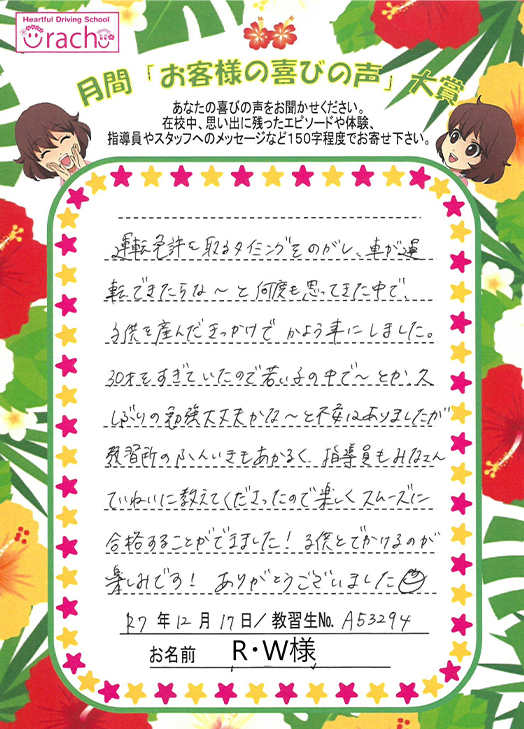 Heartful Driving School
Uracho
月間「お客様の喜びの声」大賞
あなたの喜びの声をお聞かせください。
在校中、思い出に残ったエピソードや体験、
指導員やスタッフへのメッセージなど150字程度でお寄せ下さい。
運転免許を取るタイミングをのがし、車が運
転できたらな〜と何度も思ってきた中で、
子供を産んだきっかけでかよう事にしました。
30才をすぎていたので若い子の中で〜とか久
しぶりの勉強大丈夫かな〜と不安はありましたが
教習所のふんいきもあかるく、指導員もみなさん
ていねいに教えてくださったので楽しくスムーズに
合格することができました！子供とでかけるのが
楽しみです！ ありがとうございました
R7年12月17日/教習生No. A53294
お名前 R・W様